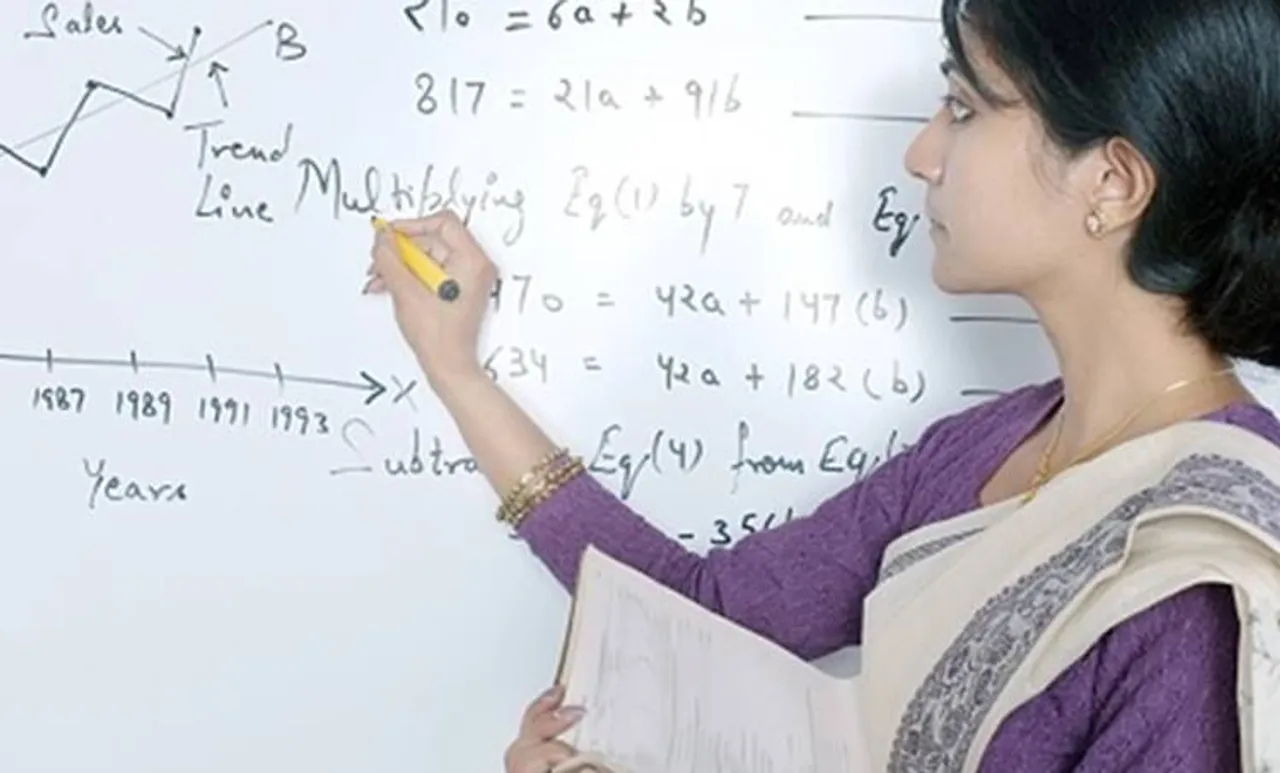 Sales
B
Trend
Line
210 = 6a + 2b
817 = 21a + 91b
Multiplying Eq(1) by 7 and Eq
470 = 42a + 147(b)
634 = 42a + 182(b)
X
1987 1989 1991 1993
Years
Subtra Eq(4) from Eq(
- 35(